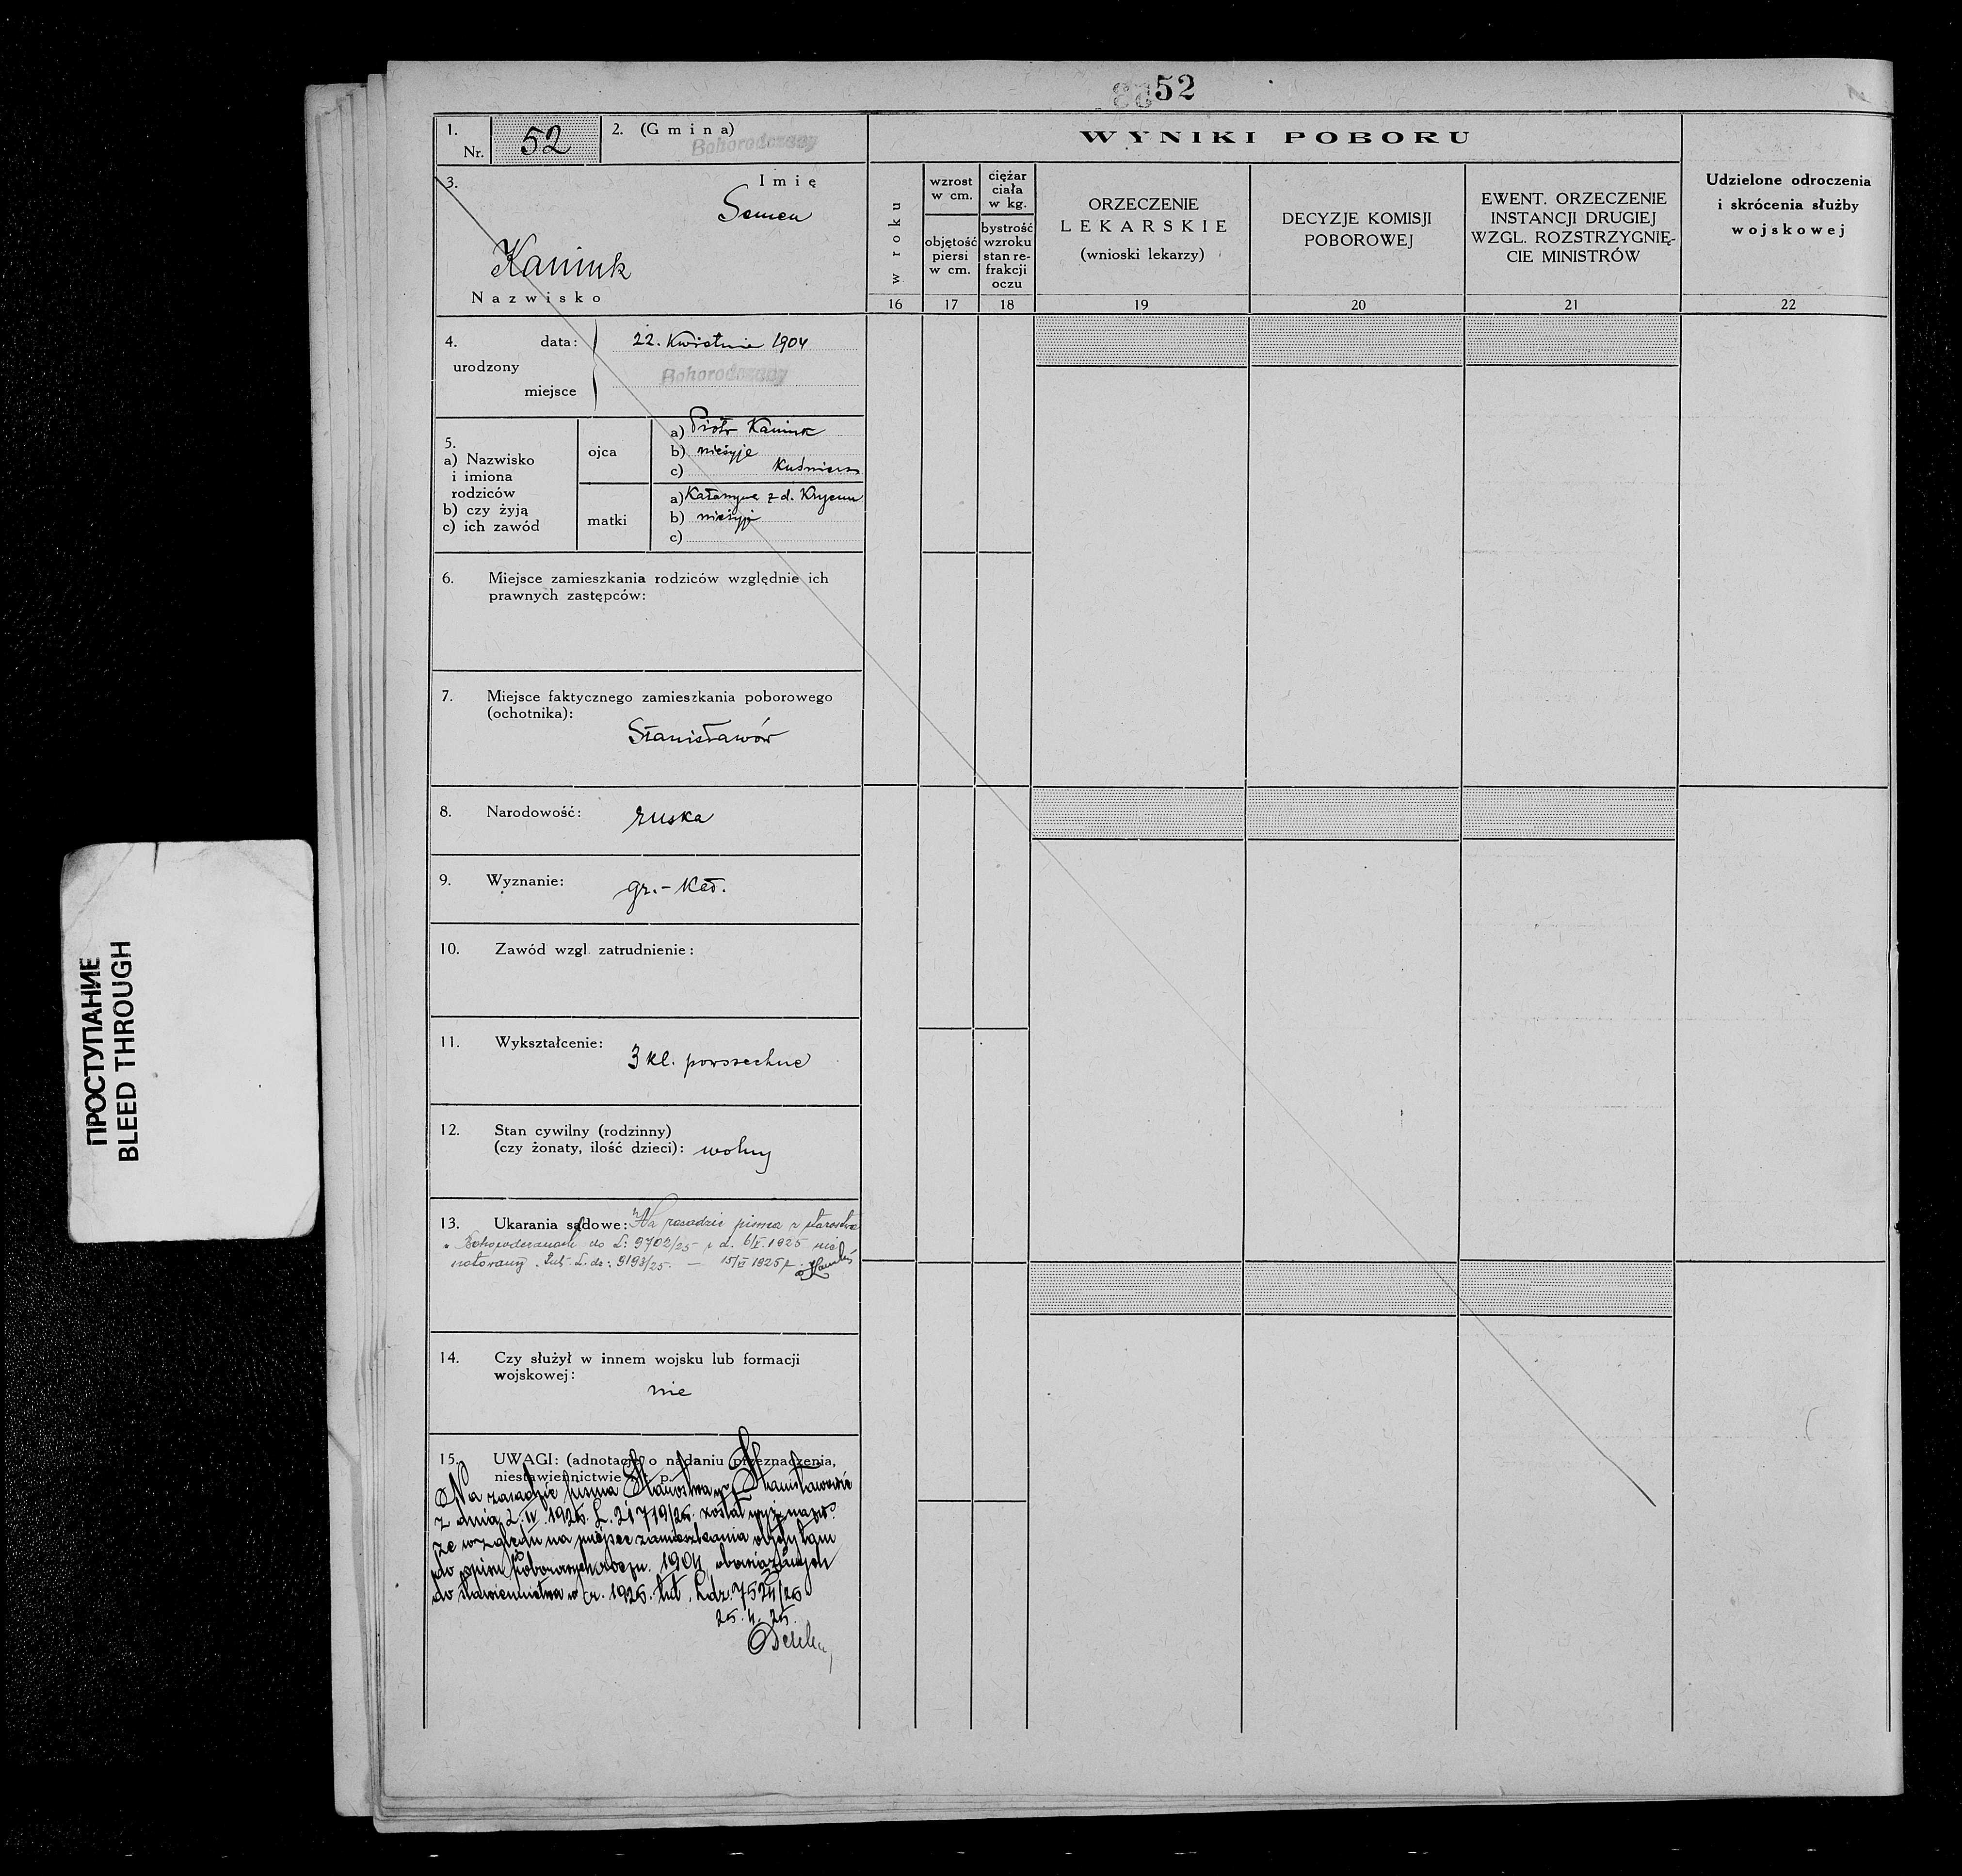 52
1.
Nr. 52
2. (Gmina)
Bohorodczany
3.
Imię
Semen
Kaniuk
Nazwisko
4.
urodzony
data: 22. Kwietnia 1904
miejsce Bohorodczany
5.
a) Nazwisko
i imiona
rodziców
b) czy żyją
c) ich zawód
ojca
a) Piotr Kaniuk
b) nieżyje
c) Kuśnierz
matki
a) Katarzyna z d.
b) nieżyje
c)
6. Miejsce zamieszkania rodziców względnie ich
prawnych zastępców:
7. Miejsce faktycznego zamieszkania poborowego
(ochotnika):
Stanisławów
8. Narodowość: ruska
9. Wyznanie: gr.-kat.
10. Zawód wzgl. zatrudnienie:
11. Wykształcenie:
3 kl. powszechne
12. Stan cywilny (rodzinny)
(czy żonaty, ilość dzieci): wolny
13. Ukarania sądowe: Na zasadzie pisma z starostwa
w Bohorodczanach do L: 9702/25 z d. 1925 nie
notowany. tut. L. dz: 9193/25. — 1925 r.
14. Czy służył w innem wojsku lub formacji
wojskowej:
nie
15. UWAGI: (adnotacje o nadaniu przeznaczenia,
niestawiennictwie i t. p.
Na zasadzie pisma Starostwa w Stanisławowie
z dnia 2. IV. 1925. L. 21719/25. został wyż. nazw.
ze względu na miejsce zamieszkania
do spisu poborowych roczn. 1904, obowiązanych
do stawiennictwa w r. 1925. tut. L.dz. 7524/25
WYNIKI POBORU
w roku
wzrost
w cm.
objętość
piersi
w cm.
ciężar
ciała
w kg.
bystrość
wzroku
stan re-
frakcji
oczu
ORZECZENIE
LEKARSKIE
(wnioski lekarzy)
DECYZJE KOMISJI
POBOROWEJ
EWENT. ORZECZENIE
INSTANCJI DRUGIEJ
WZGL. ROZSTRZYGNIĘ-
CIE MINISTRÓW
Udzielone odroczenia
i skrócenia służby
wojskowej
16 17 18 19 20 21 22
ПРОСТУПАНИЕ
BLEED THROUGH